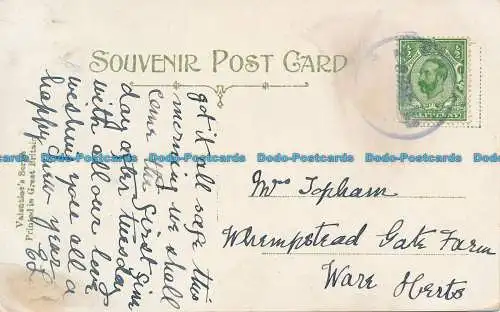 SOUVENIR POST CARD
got it all safe this
morning we shall
come the first fine
day after Tuesday
with all our love
wishing you all a
happy New year
Valentine's Series
Printed in Great Britain
HALFPENNY
Mrs Topham
Whempstead Gate Farm
Ware Herts
Dodo-Postcards Dodo-Postcards Dodo-Postcards Dodo-Postcards Dodo-Postcards